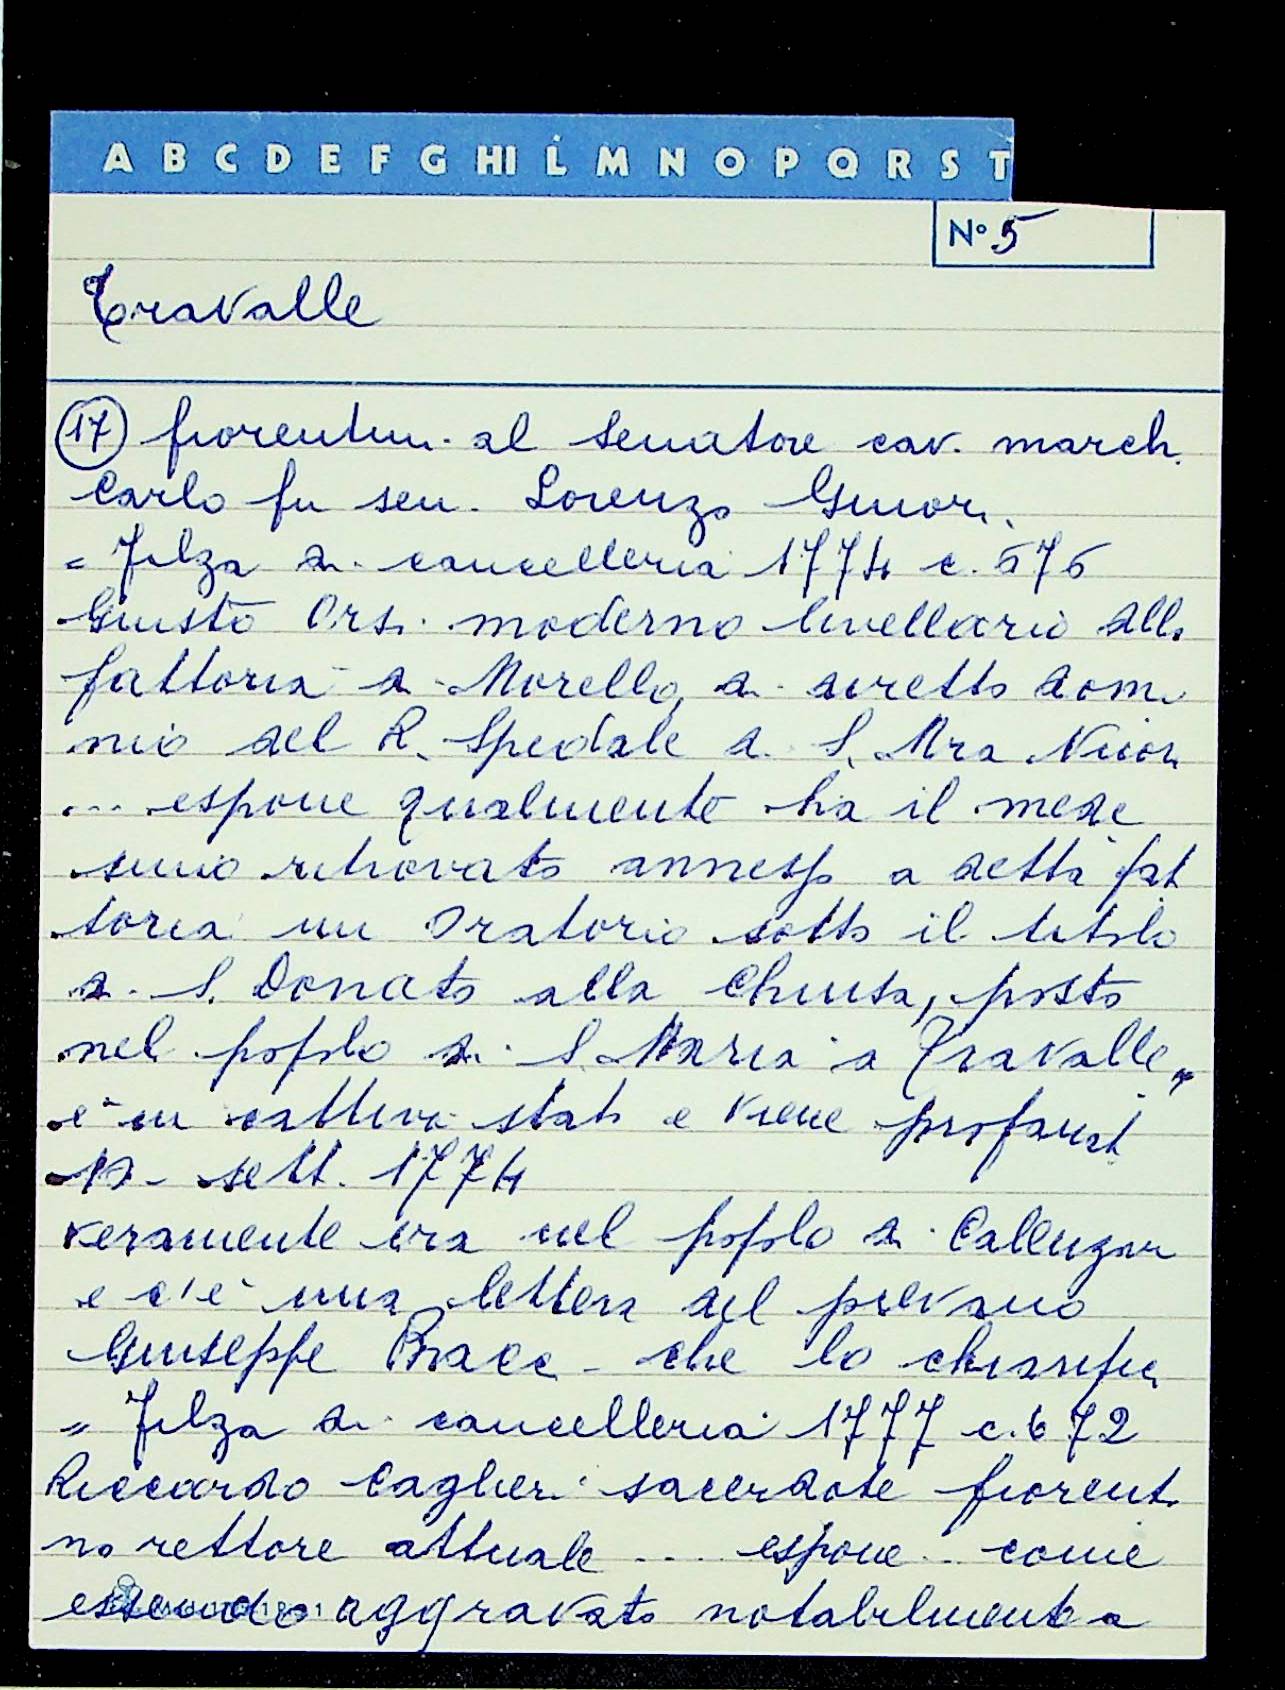 A B C D E F G HI L M N O P Q R S T
N° 5
Travalle
17 fiorentini al senatore cav. march.
Carlo fu sen. Lorenzo Ginori.
= Filza di cancelleria 1774 c. 576
Giusto Orsi moderno livellario alla
fattoria di Morello, di diretto domi
nio del R. Spedale di S. Mra Nuova
... espone qualmente ha il mede
simo ritrovato annesso a detta fat
toria un Oratorio sotto il titolo
di S. Donato alla Chiusa, posto
nel popolo di S. Maria a Travalle,,
è in cattivo stato e viene profanat
sett. 1774
veramente era nel popolo di Calenzano
e c'è una lettera del pievano
Giuseppe Bracci che lo chiarifica
= Filza di cancelleria 1777 c. 672
Riccardo Caglieri sacerdote fiorenti
no rettore attuale .... espone .. come
essendo aggravato notabilmente